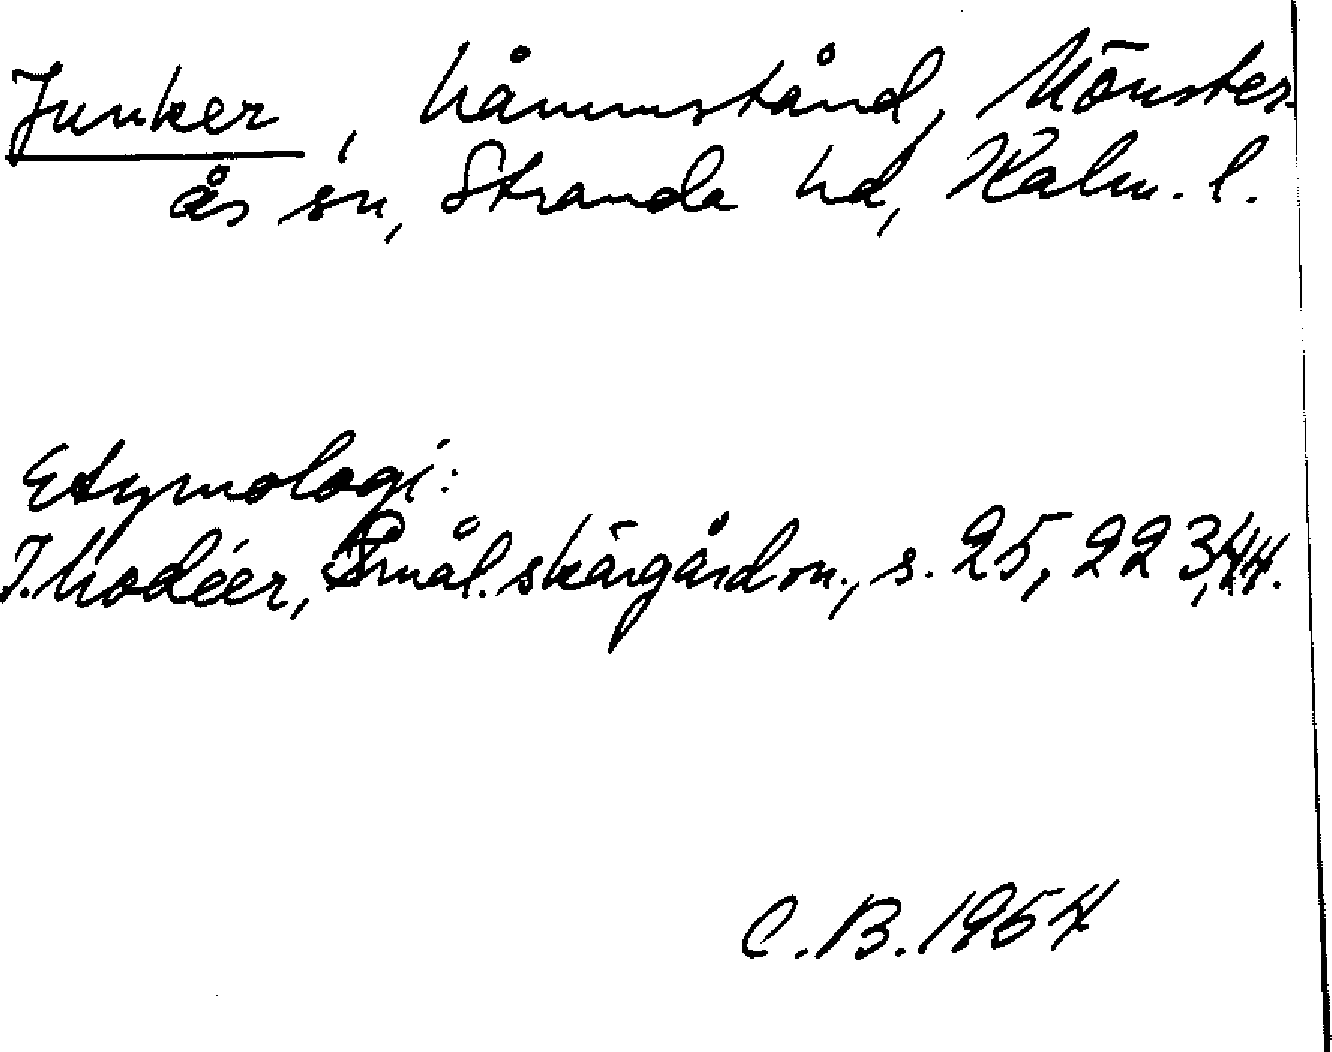 Junker, Nåmmstånd, Mönster-
ås sn, Stranda hd, Kalm. l.
Etymologi:
I. Modéer, Smål. skärgårdsn., s. 25, 223, 44.
C.B. 1954